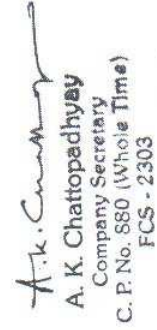 A. K. Chattopadhyay
Company Secretary
C. P. No. 880 (Whole Time)
FCS - 2303